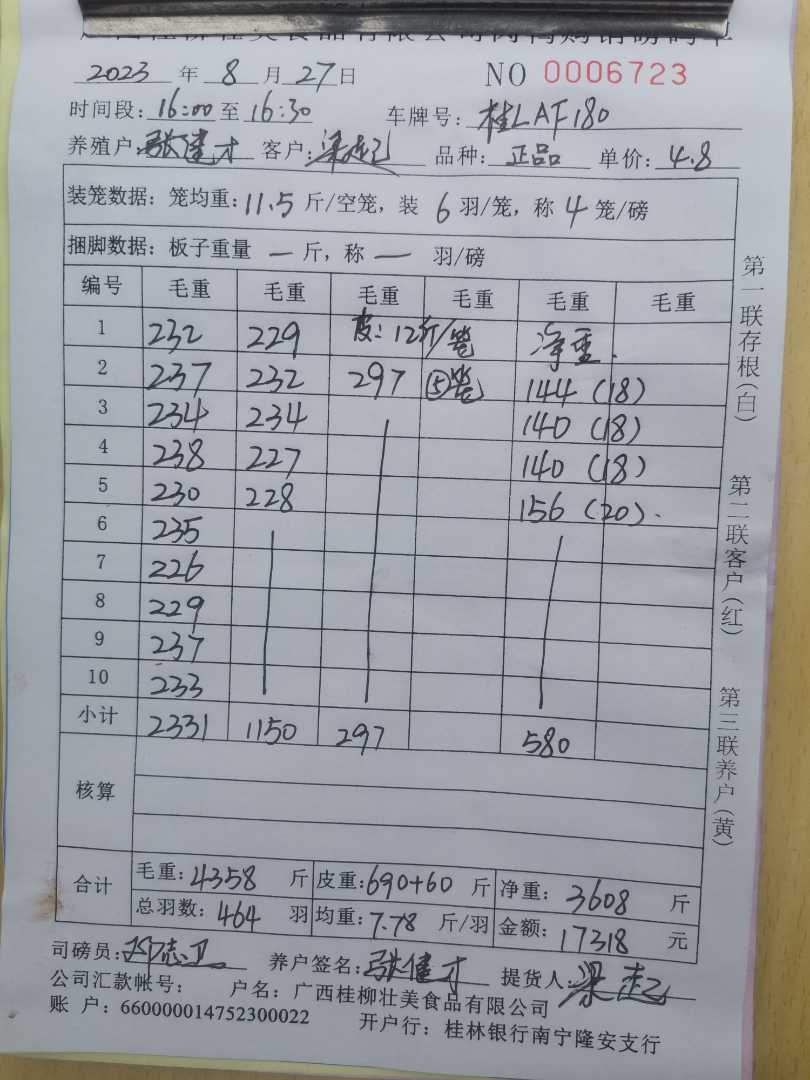 2023 年 8 月 27 日 NO 0006723
时间段: 16:00 至 16:30 车牌号: 桂LAF180
养殖户: 张健才 客户: 梁起 品种: 正品 单价: 4.8
装笼数据: 笼均重: 11.5 斤/空笼, 装 6 羽/笼, 称 4 笼/磅
捆脚数据: 板子重量 — 斤, 称 — 羽/磅
编号 毛重 毛重 毛重 毛重 毛重 毛重
1 232 229 皮: 12斤/笼 净重.
2 237 232 297 ⑤笼 144 (18)
3 234 234 140 (18)
4 238 227 140 (18)
5 230 228 156 (20).
6 235
7 226
8 229
9 237
10 233
小计 2331 1150 297 580
核算
合计 毛重: 4358 斤 皮重: 690+60 斤 净重: 3608 斤
总羽数: 464 羽 均重: 7.78 斤/羽 金额: 17318 元
司磅员: 邓志卫 养户签名: 张健才 提货人: 梁起
公司汇款帐号: 户名: 广西桂柳壮美食品有限公司
账 户: 660000014752300022 开户行: 桂林银行南宁隆安支行
第一联存根(白) 第二联客户(红) 第三联养户(黄)